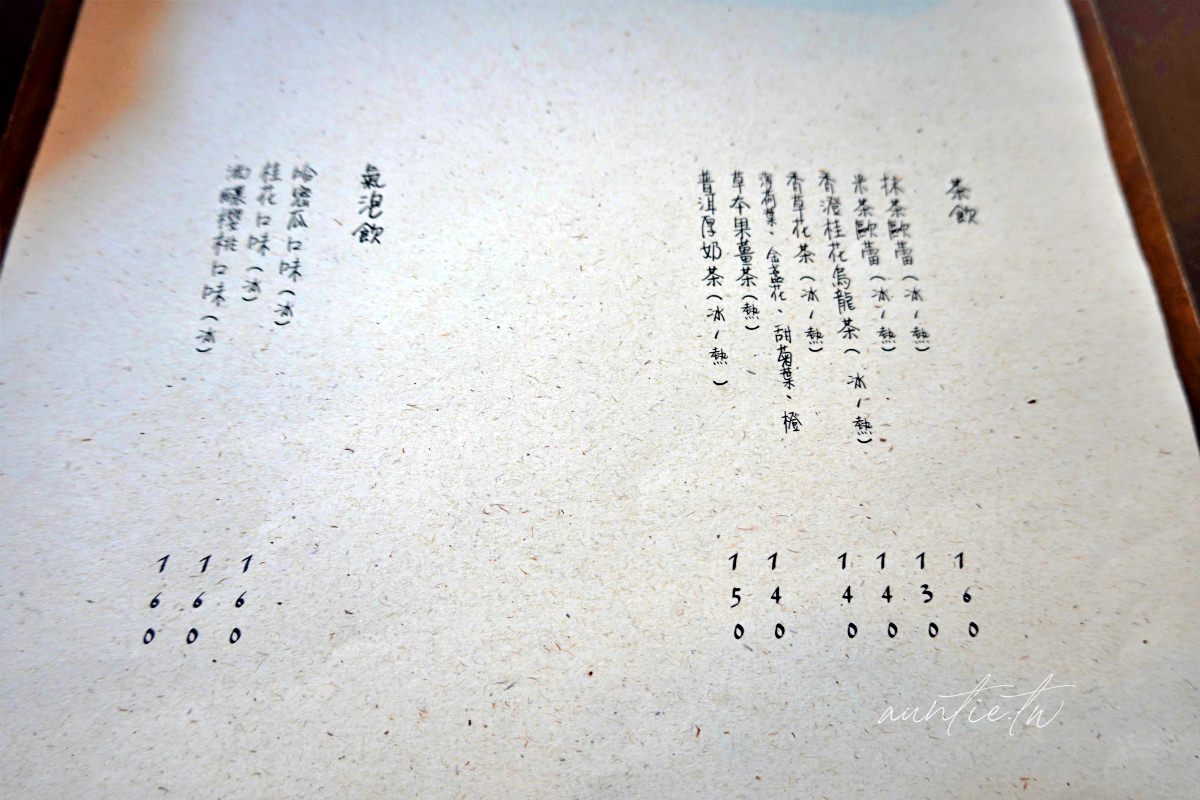 茶飲
抹茶歐蕾(冰/熱) 160
米茶歐蕾(冰/熱) 130
香澄桂花烏龍茶(冰/熱) 140
香草花茶(冰/熱) 140
薄荷葉、金盞花、甜菊葉、橙
草本果薑茶(熱) 140
普洱厚奶茶(冰/熱) 150
氣泡飲
哈密瓜口味(冰) 160
桂花口味(冰) 160
酒釀櫻桃口味(冰) 160
auntie.tw